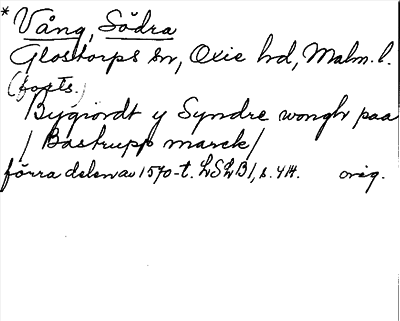 * Vång, Södra
Glostorps sn, Oxie hd, Malm. l.
(forts.)
Bygiordt y Syndre wongh paa
/ Bastrupp marck /
förra delen av 1570-t. LSLB1, s. 414. orig.